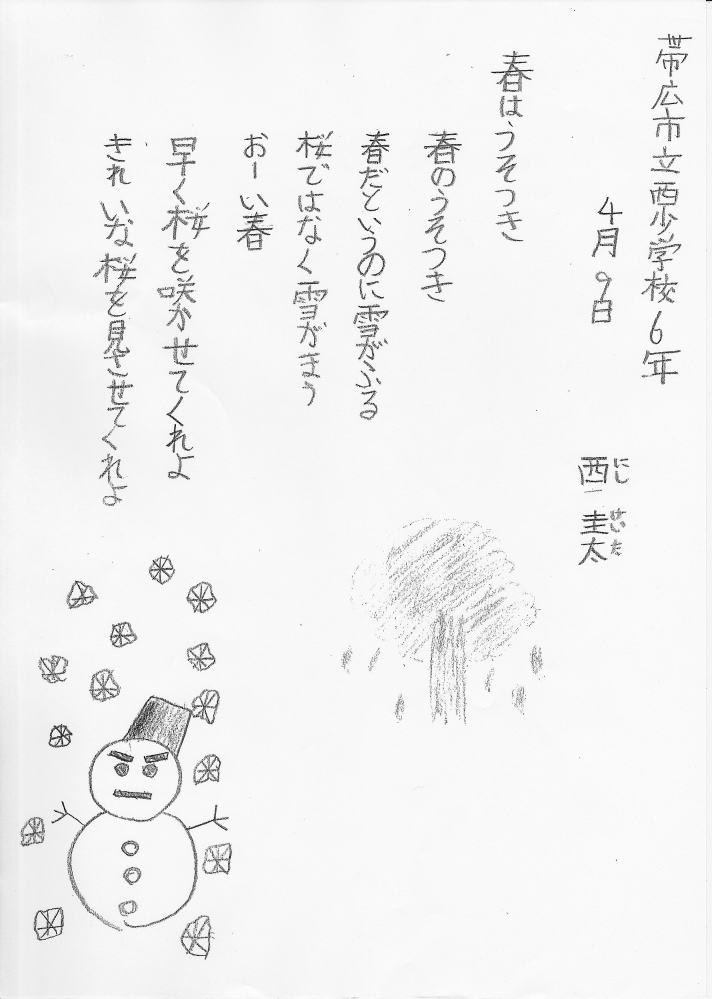 帯広市立西小学校6年
4月9日
西 圭太
にし けいた
春はうそつき
春のうそつき
春だというのに雪がふる
桜ではなく雪がまう
おーい春
早く桜を咲かせてくれよ
きれいな桜を見させてくれよ